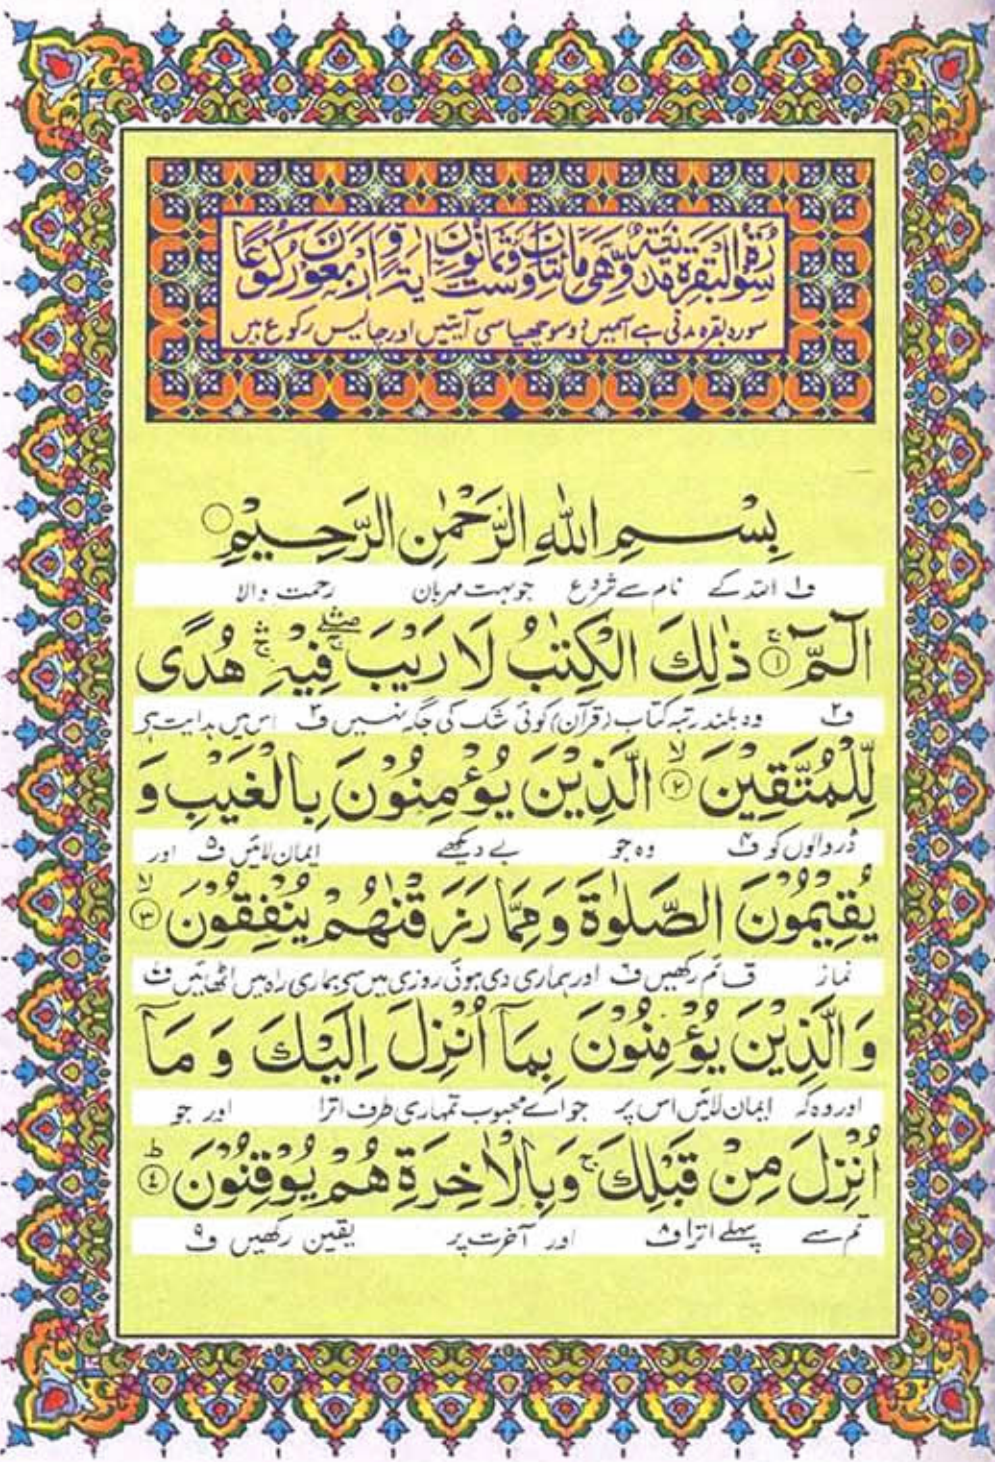 سُوْرَةُ الْبَقَرَةِ مَدَنِيَّةٌ وَّهِيَ مِائَتَانِ وَسِتٌّ وَّثَمَانُوْنَ اٰيَةً وَّاَرْبَعُوْنَ رُكُوْعًا
سورہ بقرہ مدنی ہے اسمیں دو سو چھیاسی آیتیں اور چالیس رکوع ہیں
بِسْمِ اللّٰهِ الرَّحْمٰنِ الرَّحِيْمِ ○
ف۱ اللہ کے نام سے شروع جو بہت مہربان رحمت والا
الٓمّٓ ۚ﴿۱﴾ ذٰلِكَ الْكِتٰبُ لَا رَيْبَ ۛۖۚ فِيْهِ ۛۚ هُدًى
ف۲ وہ بلند رتبہ کتاب (قرآن) کوئی شک کی جگہ نہیں ف۳ اس میں ہدایت ہے
لِّلْمُتَّقِيْنَ ۙ﴿۲﴾ الَّذِيْنَ يُؤْمِنُوْنَ بِالْغَيْبِ وَ
ڈر والوں کو ف۴ وہ جو بے دیکھے ایمان لائیں ف۵ اور
يُقِيْمُوْنَ الصَّلٰوةَ وَمِمَّا رَزَقْنٰهُمْ يُنْفِقُوْنَ ۙ﴿۳﴾
نماز قائم رکھیں ف۶ اور ہماری دی ہوئی روزی میں سے ہماری راہ میں اٹھائیں ف۷
وَالَّذِيْنَ يُؤْمِنُوْنَ بِمَآ اُنْزِلَ اِلَيْكَ وَ مَآ
اور وہ کہ ایمان لائیں اس پر جو اے محبوب تمہاری طرف اترا اور جو
اُنْزِلَ مِنْ قَبْلِكَ ۚ وَبِالْاٰخِرَةِ هُمْ يُوْقِنُوْنَ ؕ﴿۴﴾
تم سے پہلے اترا ف۸ اور آخرت پر یقین رکھیں ف۹